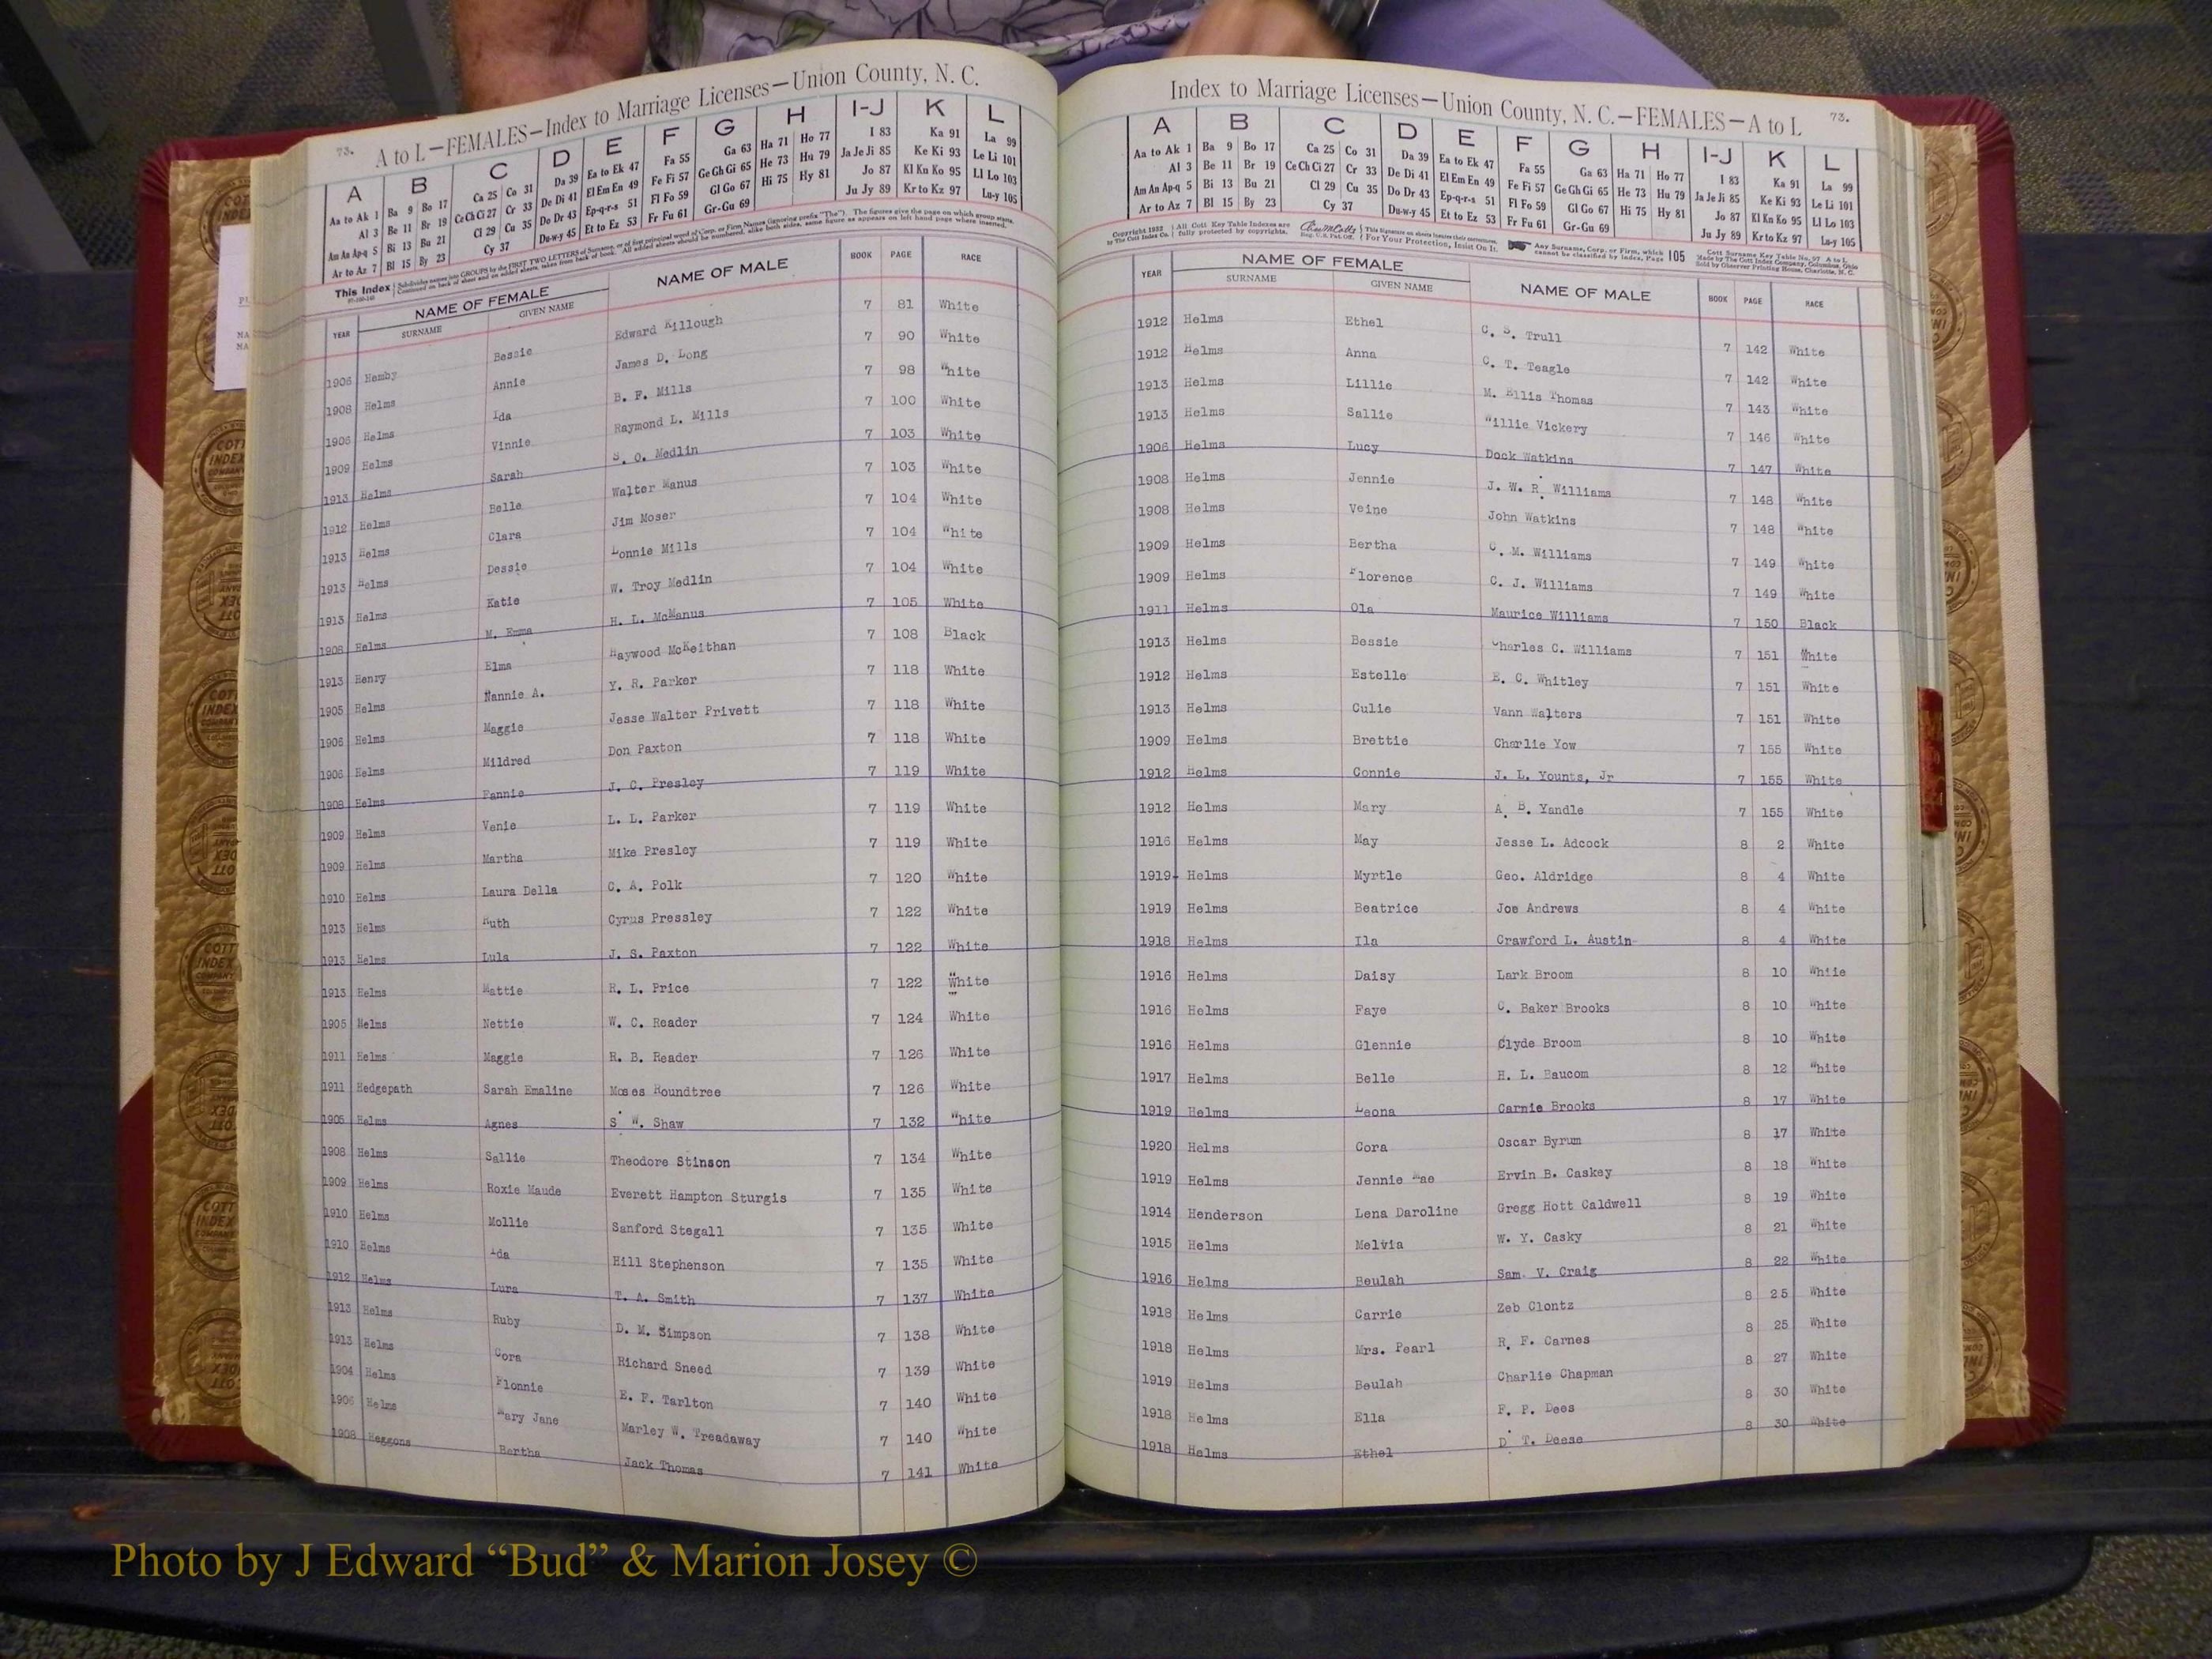 73. A to L—FEMALES—Index to Marriage Licenses—Union County, N. C.
A B C D E F G H I-J K L
Aa to Ak 1 Ba 9 Bo 17 Ca 25 Co 31 Da 39 Ea to Ek 47 Fa 55 Ga 63 Ha 71 Ho 77 I 83 Ka 91 La 99
Al 3 Be 11 Br 19 Ce Ch Ci 27 Cr 33 De Di 41 El Em En 49 Fe Fi 57 Ge Gh Gi 65 He 73 Hu 79 Ja Je Ji 85 Ke Ki 93 Le Li 101
Am An Ap-q 5 Bi 13 Bu 21 Cl 29 Cu 35 Do Dr 43 Ep-q-r-s 51 Fl Fo 59 Gl Go 67 Hi 75 Hy 81 Jo 87 Kl Kn Ko 95 Ll Lo 103
Ar to Az 7 Bl 15 By 23 Cy 37 Du-w-y 45 Et to Ez 53 Fr Fu 61 Gr-Gu 69 Ju Jy 89 Kr to Kz 97 Lu-y 105
This Index
YEAR NAME OF FEMALE NAME OF MALE BOOK PAGE RACE
SURNAME GIVEN NAME
1906 Hemby Bessie Edward Killough 7 81 White
1908 Helms Annie James D. Long 7 90 White
1906 Helms Ida B. F. Mills 7 98 White
1909 Helms Vinnie Raymond L. Mills 7 100 White
1913 Helms Sarah S. O. Medlin 7 103 White
1912 Helms Belle Walter Manus 7 103 White
1913 Helms Clara Jim Moser 7 104 White
1913 Helms Dessie Lonnie Mills 7 104 White
1913 Helms Katie W. Troy Medlin 7 104 White
1908 Helms M. Emma H. L. McManus 7 105 White
1913 Henry Elma Haywood McKeithan 7 108 Black
1905 Helms Nannie A. Y. R. Parker 7 118 White
1906 Helms Maggie Jesse Walter Privett 7 118 White
1906 Helms Mildred Don Paxton 7 118 White
1908 Helms Fannie J. C. Presley 7 119 White
1909 Helms Venie L. L. Parker 7 119 White
1909 Helms Martha Mike Presley 7 119 White
1910 Helms Laura Della C. A. Polk 7 120 White
1913 Helms Ruth Cyrus Pressley 7 122 White
1913 Helms Lula J. S. Paxton 7 122 White
1913 Helms Mattie R. L. Price 7 122 White
1905 Helms Nettie W. C. Reader 7 124 White
1911 Helms Maggie R. B. Reader 7 126 White
1911 Hedgepath Sarah Emaline Moses Roundtree 7 126 White
1905 Helms Agnes S. W. Shaw 7 132 White
1908 Helms Sallie Theodore Stinson 7 134 White
1909 Helms Roxie Maude Everett Hampton Sturgis 7 135 White
1910 Helms Mollie Sanford Stegall 7 135 White
1910 Helms Ida Hill Stephenson 7 135 White
1912 Helms Lura T. A. Smith 7 137 White
1913 Helms Ruby D. M. Simpson 7 138 White
1913 Helms Cora Richard Sneed 7 139 White
1904 Helms Flonnie E. F. Tarlton 7 140 White
1906 Helms Mary Jane Marley W. Treadaway 7 140 White
1908 Heggons Bertha Jack Thomas 7 141 White
Index to Marriage Licenses—Union County, N. C.—FEMALES—A to L 73.
A B C D E F G H I-J K L
Aa to Ak 1 Ba 9 Bo 17 Ca 25 Co 31 Da 39 Ea to Ek 47 Fa 55 Ga 63 Ha 71 Ho 77 I 83 Ka 91 La 99
Al 3 Be 11 Br 19 Ce Ch Ci 27 Cr 33 De Di 41 El Em En 49 Fe Fi 57 Ge Gh Gi 65 He 73 Hu 79 Ja Je Ji 85 Ke Ki 93 Le Li 101
Am An Ap-q 5 Bi 13 Bu 21 Cl 29 Cu 35 Do Dr 43 Ep-q-r-s 51 Fl Fo 59 Gl Go 67 Hi 75 Hy 81 Jo 87 Kl Kn Ko 95 Ll Lo 103
Ar to Az 7 Bl 15 By 23 Cy 37 Du-w-y 45 Et to Ez 53 Fr Fu 61 Gr-Gu 69 Ju Jy 89 Kr to Kz 97 Lu-y 105
Copyright 1932 by The Cott Index Co. All Cott Key Table Indexes are fully protected by copyrights. For Your Protection, Insist On It. Any Surname, Corp. or Firm, which cannot be classified by Index, Page 105
YEAR NAME OF FEMALE NAME OF MALE BOOK PAGE RACE
SURNAME GIVEN NAME
1912 Helms Ethel C. S. Trull 7 142 White
1912 Helms Anna C. T. Teagle 7 142 White
1913 Helms Lillie M. Ellis Thomas 7 143 White
1913 Helms Sallie Willie Vickery 7 146 White
1906 Helms Lucy Dock Watkins 7 147 White
1908 Helms Jennie J. W. R. Williams 7 148 White
1908 Helms Veine John Watkins 7 148 White
1909 Helms Bertha C. M. Williams 7 149 White
1909 Helms Florence C. J. Williams 7 149 White
1911 Helms Ola Maurice Williams 7 150 Black
1913 Helms Bessie Charles C. Williams 7 151 White
1912 Helms Estelle E. C. Whitley 7 151 White
1913 Helms Culie Vann Walters 7 151 White
1909 Helms Brettie Charlie Yow 7 155 White
1912 Helms Connie J. L. Younts, Jr 7 155 White
1912 Helms Mary A. B. Yandle 7 155 White
1916 Helms May Jesse L. Adcock 8 2 White
1919 Helms Myrtle Geo. Aldridge 8 4 White
1919 Helms Beatrice Joe Andrews 8 4 White
1918 Helms Ila Crawford L. Austin 8 4 White
1916 Helms Daisy Lark Broom 8 10 While
1916 Helms Faye C. Baker Brooks 8 10 White
1916 Helms Glennie Clyde Broom 8 10 White
1917 Helms Belle H. L. Baucom 8 12 White
1919 Helms Leona Carnie Brooks 8 17 White
1920 Helms Cora Oscar Byrum 8 17 White
1919 Helms Jennie Mae Ervin B. Caskey 8 18 White
1914 Henderson Lena Daroline Gregg Hott Caldwell 8 19 White
1915 Helms Melvia W. Y. Casky 8 21 White
1916 Helms Beulah Sam. V. Craig 8 22 White
1918 Helms Carrie Zeb Clontz 8 25 White
1918 Helms Mrs. Pearl R. F. Carnes 8 25 White
1919 Helms Beulah Charlie Chapman 8 27 White
1918 Helms Ella F. P. Dees 8 30 White
1918 Helms Ethel D. T. Deese 8 30 White
Photo by J Edward “Bud” & Marion Josey ©